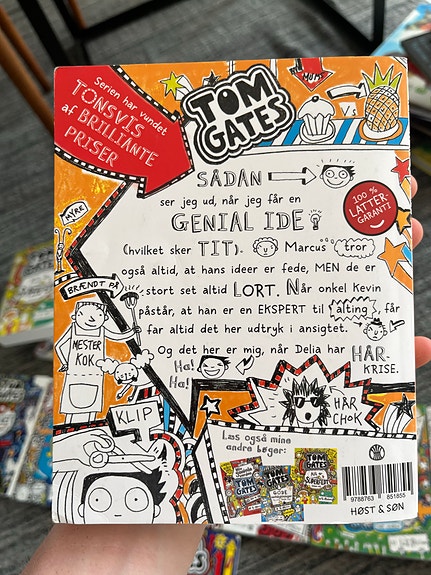 Serien har vundet
TONSVIS
af BRILLIANTE
PRISER
TOM
GATES
MUMS
VS
SÅDAN
ser jeg ud, når jeg får en
GENIAL IDE
(hvilket sker TIT). Marcus tror
også altid, at hans ideer er fede, MEN de er
stort set altid LORT. Når onkel Kevin
påstår, at han er en EKSPERT til alting, får
far altid det her udtryk i ansigtet.
Og det her er mig, når Delia har HÅR-
KRISE.
100 %
LATTER-
GARANTI
MYRE
BRÆNDT PØ
MESTER
KOK
Ha!
Ha!
KLIP
HÅR
CHOK
Læs også mine
andre bøger:
TOM
GATES
TOM
GATES
9788763 851855
HØST & SØN
TOM GATES